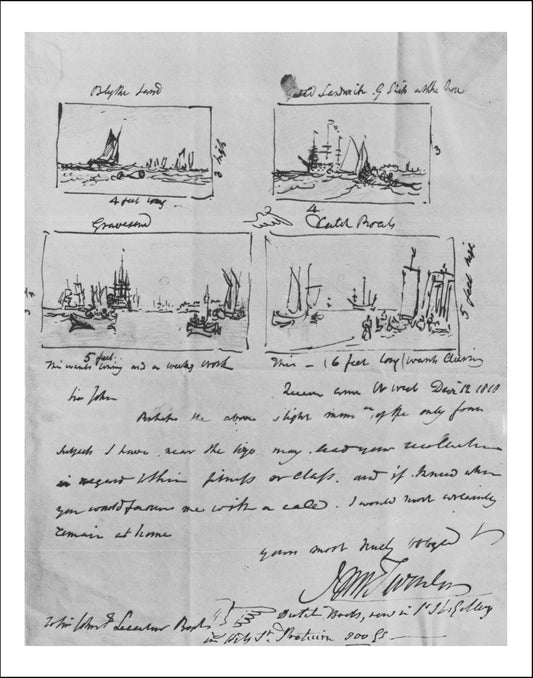 Blythe Sand
Sandwich & Ships at the Nore
3 high
3
4 feet long
4
Gravesend
Dutch Boats
3
5 feet high
5 feet
This wants lining and a weeks work
This – 6 feet long/wants Cleaning
Sir John
Queen Anne St West Dec 12 1810
Perhaps the above slight mem of the only four
subjects I have near the size may lead your recollection
in regard their fitness or class. and if I knew when
you would favour me with a call. I would most certainly
remain at home
yours most truly obliged
JMW Turner
Sir John Leicester Bart
Dutch Boats, now in Sir J L's Gallery
in Hill St